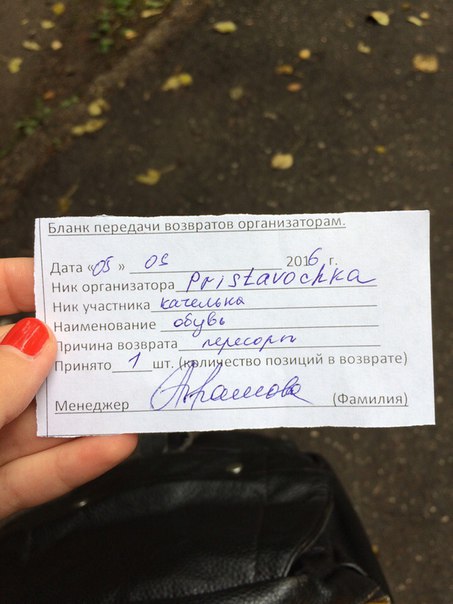 Бланк передачи возвратов организаторам.
Дата «05» 09 2016 г.
Ник организатора Pristavochka
Ник участника качелька
Наименование обувь
Причина возврата пересорт
Принято 1 шт. (количество позиций в возврате)
Менеджер Абрамова (Фамилия)